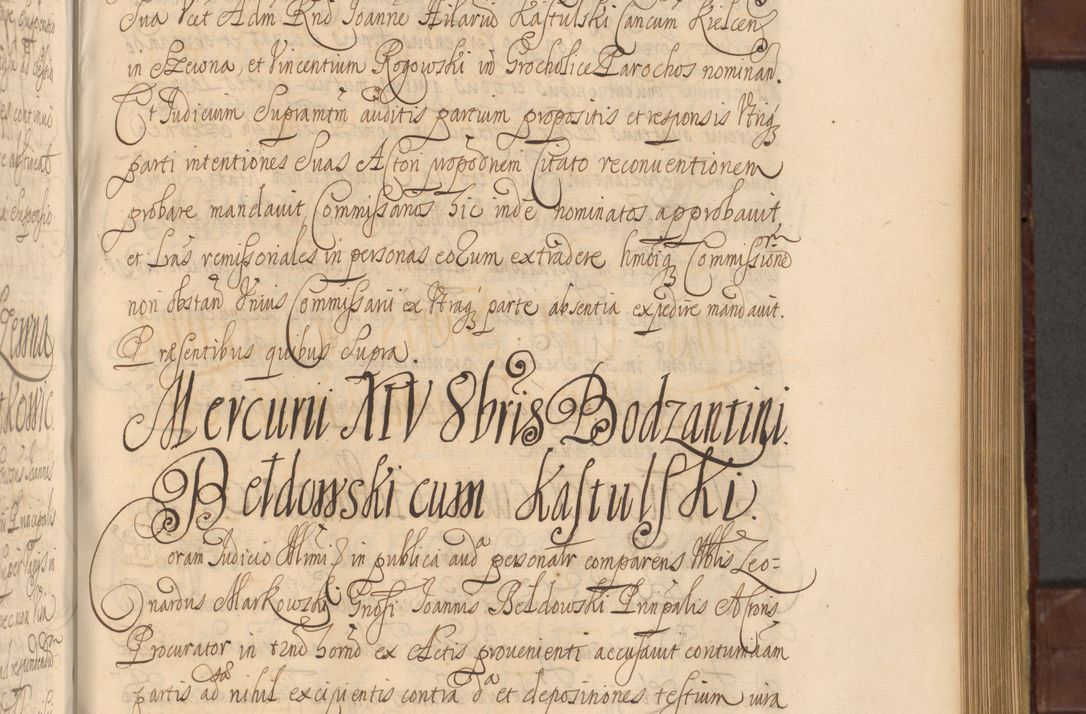 Sua Vcet Adm Rnd Joanne Hilario Kastulski Cancum Kielcen
in Szewna, et Vincentium Rogowski in Grocholice Parochos nominan.
Et Judicium Supramtm auditis partium propositis et responsis Utrīq
parti intentiones Suas Actori propodnem Citato reconventionem
probare mandavit Commissarios hic inde nominatos approbavit
et Lras remissoriales in personas eorum extradere limbiq Commissiorum
non obstan Unius Commissarii ex Utraq parte absentia expedire mandavit.
Præsentibus quibus Supra.
Mercurii XIV 8bris Bodzantini.
Bełdowski cum Kastulski.
Coram Judicio Illmi in publica auda personaltr comparens Nblis Leo-
nardus Markowski Gnosi Joannis Bełdowski Prinpalis Actoris
Procurator in trno horno ex Actis provenienti accusavit contumiam
partis ad nihil excipientis contra da et depositiones testium iura